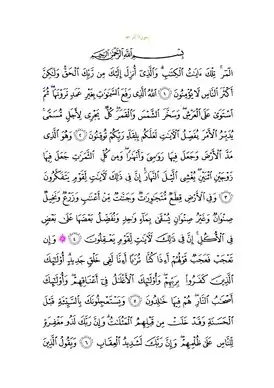 سورة الرعد
بسم الله الرحمن الرحيم
الٓمٓر تِلْكَ ءَايَٰتُ ٱلْكِتَٰبِ وَٱلَّذِىٓ أُنزِلَ إِلَيْكَ مِن رَّبِّكَ ٱلْحَقُّ وَلَٰكِنَّ
أَكْثَرَ ٱلنَّاسِ لَا يُؤْمِنُونَ ﴿١﴾ ٱللَّهُ ٱلَّذِى رَفَعَ ٱلسَّمَٰوَٰتِ بِغَيْرِ عَمَدٍ تَرَوْنَهَا ثُمَّ
ٱسْتَوَىٰ عَلَى ٱلْعَرْشِ وَسَخَّرَ ٱلشَّمْسَ وَٱلْقَمَرَ كُلٌّ يَجْرِى لِأَجَلٍ مُّسَمًّى
يُدَبِّرُ ٱلْأَمْرَ يُفَصِّلُ ٱلْءَايَٰتِ لَعَلَّكُم بِلِقَآءِ رَبِّكُمْ تُوقِنُونَ ﴿٢﴾ وَهُوَ ٱلَّذِى
مَدَّ ٱلْأَرْضَ وَجَعَلَ فِيهَا رَوَٰسِىَ وَأَنْهَٰرًا وَمِن كُلِّ ٱلثَّمَرَٰتِ جَعَلَ فِيهَا
زَوْجَيْنِ ٱثْنَيْنِ يُغْشِى ٱلَّيْلَ ٱلنَّهَارَ إِنَّ فِى ذَٰلِكَ لَءَايَٰتٍ لِّقَوْمٍ يَتَفَكَّرُونَ
﴿٣﴾ وَفِى ٱلْأَرْضِ قِطَعٌ مُّتَجَٰوِرَٰتٌ وَجَنَّٰتٌ مِّنْ أَعْنَٰبٍ وَزَرْعٌ وَنَخِيلٌ
صِنْوَانٌ وَغَيْرُ صِنْوَانٍ يُسْقَىٰ بِمَآءٍ وَٰحِدٍ وَنُفَضِّلُ بَعْضَهَا عَلَىٰ بَعْضٍ
فِى ٱلْأُكُلِ إِنَّ فِى ذَٰلِكَ لَءَايَٰتٍ لِّقَوْمٍ يَعْقِلُونَ ﴿٤﴾ وَإِن
تَعْجَبْ فَعَجَبٌ قَوْلُهُمْ أَءِذَا كُنَّا تُرَٰبًا أَءِنَّا لَفِى خَلْقٍ جَدِيدٍ أُو۟لَٰٓئِكَ
ٱلَّذِينَ كَفَرُوا۟ بِرَبِّهِمْ وَأُو۟لَٰٓئِكَ ٱلْأَغْلَٰلُ فِىٓ أَعْنَاقِهِمْ وَأُو۟لَٰٓئِكَ
أَصْحَٰبُ ٱلنَّارِ هُمْ فِيهَا خَٰلِدُونَ ﴿٥﴾ وَيَسْتَعْجِلُونَكَ بِٱلسَّيِّئَةِ قَبْلَ
ٱلْحَسَنَةِ وَقَدْ خَلَتْ مِن قَبْلِهِمُ ٱلْمَثُلَٰتُ وَإِنَّ رَبَّكَ لَذُو مَغْفِرَةٍ
لِّلنَّاسِ عَلَىٰ ظُلْمِهِمْ وَإِنَّ رَبَّكَ لَشَدِيدُ ٱلْعِقَابِ ﴿٦﴾ وَيَقُولُ ٱلَّذِينَ